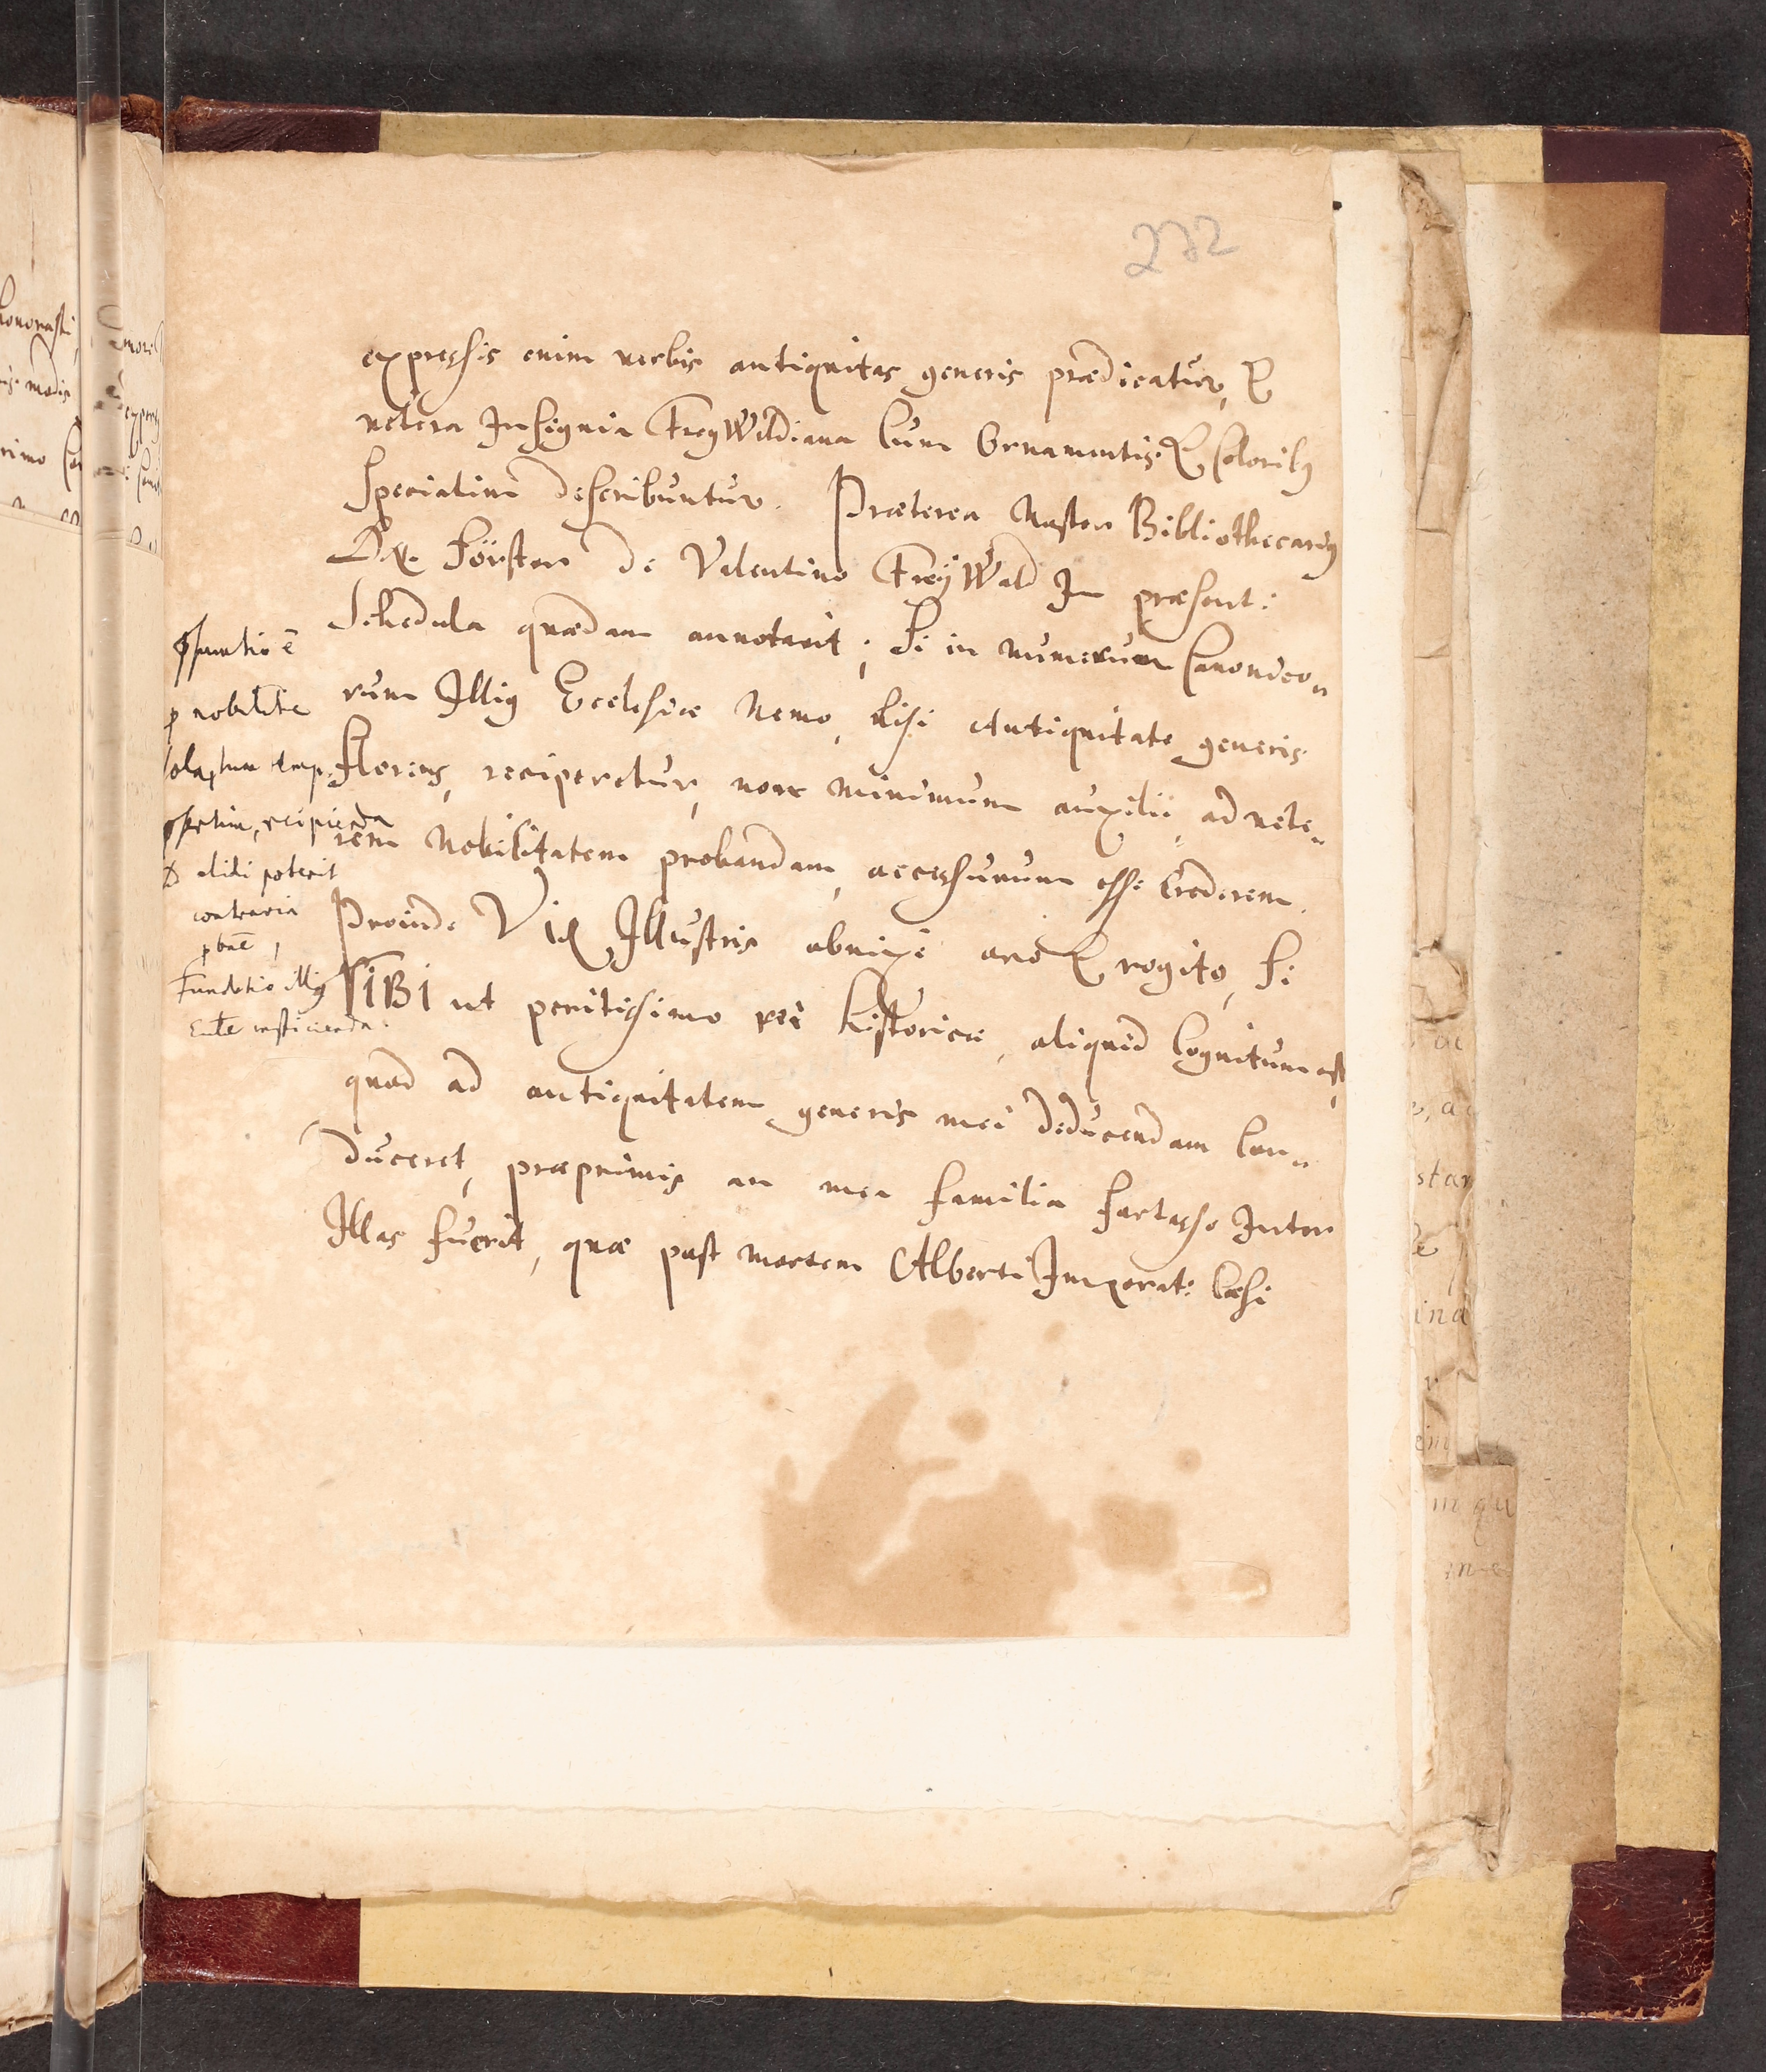 272
expressis enim verbis antiquitas generis prædicatur, &
vetera Insignia FreyWaldiana Cum Ornamentis & Colorib9
Speciatim describuntur. Præterea Noster Bibliothecari9
Dn. Förster de Valentino FreyWald In præsent:
Schedula quædam annotavit; Si in numerum Canonico„
rum Illi9 Ecclesiæ Nemo, Nisi Antiquitate generis
Florens, reciperetur, non minimum auxilii, ad vete„
rem Nobilitatem probandam, accessurum esse Crederem.
Proinde Vir Illustris obnixe oro & rogito, Si
TIBI ut peritissimo rei historicæ, aliquid Cognitum est,
quod ad antiquitatem generis mei deducendam Con„
duceret, præprimis an mea familia fortasse Inter
Illas fuerit, quæ post mortem Alberti Imperat: Cæsi
p nobilitate
recipienda
elidi poterit
contraria
Fundatio illi9